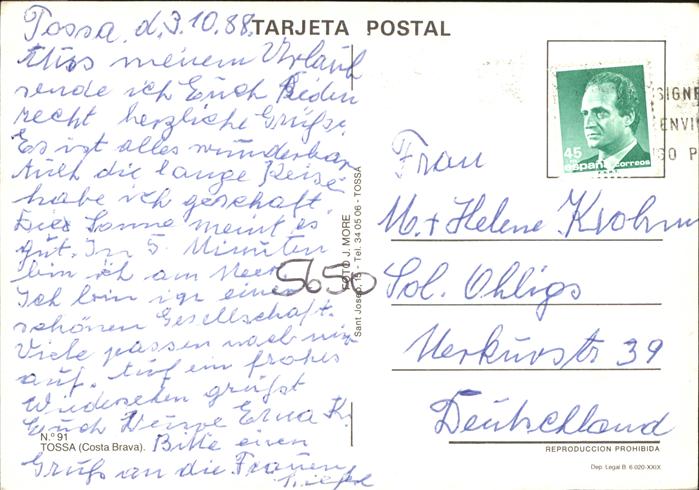 TARJETA POSTAL
Tossa, d. 3.10.88.
Aus meinem Urlaub
sende ich Euch Beiden
recht herzliche Grüße.
Es ist alles wunderbar
Auch die lange Reise
habe ich geschafft.
Die Sonne meint es
gut. In 5 Minuten
bin ich am Meer.
Ich bin in einer
schönen Gesellschaft.
Viele passen noch mir
auf. Auf ein frohes
Wiedersehen grüßt
Euch Erna K.
Bitte einen
Gruß an die Frauen
N.º 91
TOSSA (Costa Brava).
FOTO J. MORE
Sant Josep, 15 - Tel. 34 05 06 - TOSSA
5650
45
españa correos
SIGNE
ENVI
SO P
Frau
M. + Helene Krohm
Sol. Ohligs
Merkurstr 39
Deutschland
REPRODUCCION PROHIBIDA
Dep. Legal B. 6.020-XXIX